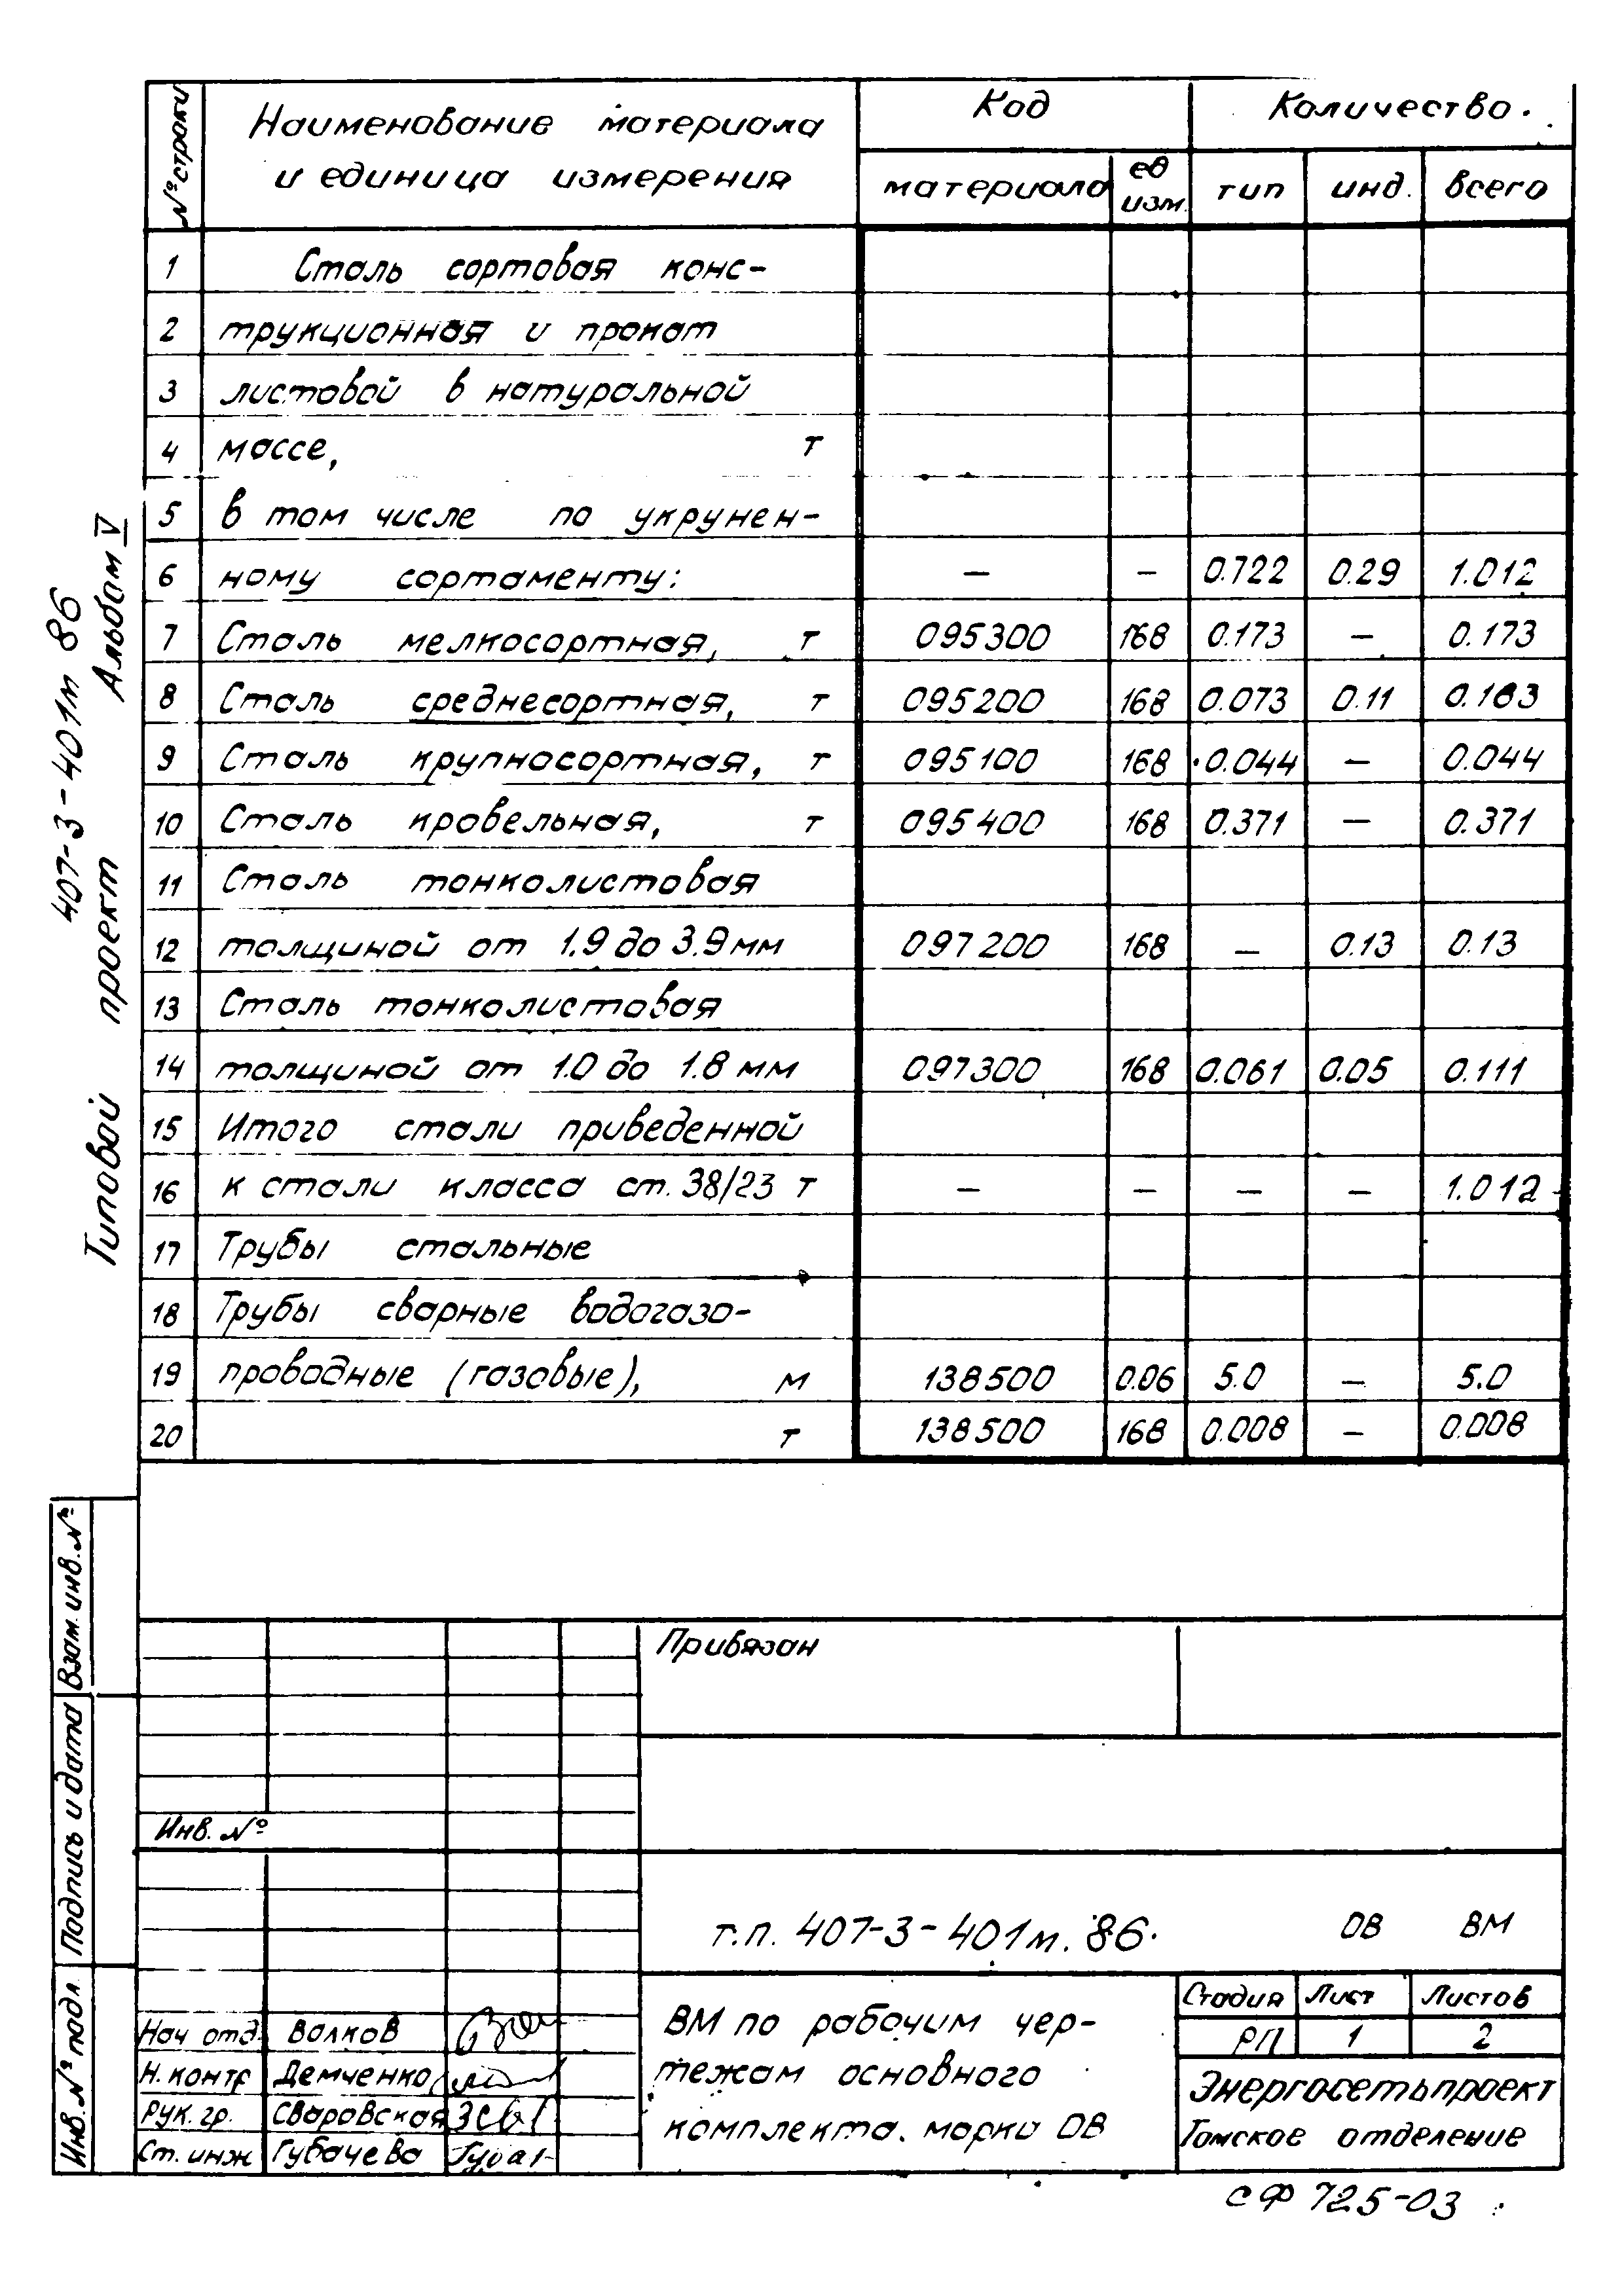 Типовой проект 407-3-401м 86
Альбом V
№ строки | Наименование материала и единица измерения | Код | Количество.
материала | ед изм. | тип | инд. | всего
1 | Сталь сортовая конс-
2 | трукционная и прокат
3 | листовой в натуральной
4 | массе, т
5 | в том числе по укрунен-
6 | ному сортаменту: | — | — | 0.722 | 0.29 | 1.012
7 | Сталь мелкосортная, т | 095300 | 168 | 0.173 | — | 0.173
8 | Сталь среднесортная, т | 095200 | 168 | 0.073 | 0.11 | 0.183
9 | Сталь крупносортная, т | 095100 | 168 | 0.044 | — | 0.044
10 | Сталь кровельная, т | 095400 | 168 | 0.371 | — | 0.371
11 | Сталь тонколистовая
12 | толщиной от 1.9 до 3.9 мм | 097200 | 168 | — | 0.13 | 0.13
13 | Сталь тонколистовая
14 | толщиной от 1.0 до 1.8 мм | 097300 | 168 | 0.061 | 0.05 | 0.111
15 | Итого стали приведенной
16 | к стали класса ст. 38/23 т | — | — | — | — | 1.012
17 | Трубы стальные
18 | Трубы сварные водогазо-
19 | проводные (газовые), м | 138500 | 0.06 | 5.0 | — | 5.0
20 | т | 138500 | 168 | 0.008 | — | 0.008
Взам. инв. №
Подпись и дата
Инв. № подл.
Привязан
Инв. №
т.п. 407-3-401м. 86. ОВ ВМ
Нач отд. Волков
Н. контр Демченко
Рук. гр. Сваровская
Ст. инж Губачева
ВМ по рабочим чер-
тежам основного
комплекта. марки ОВ
Стадия | Лист | Листов
РП | 1 | 2
Энергосетьпроект
Томское отделение
сф 725-03